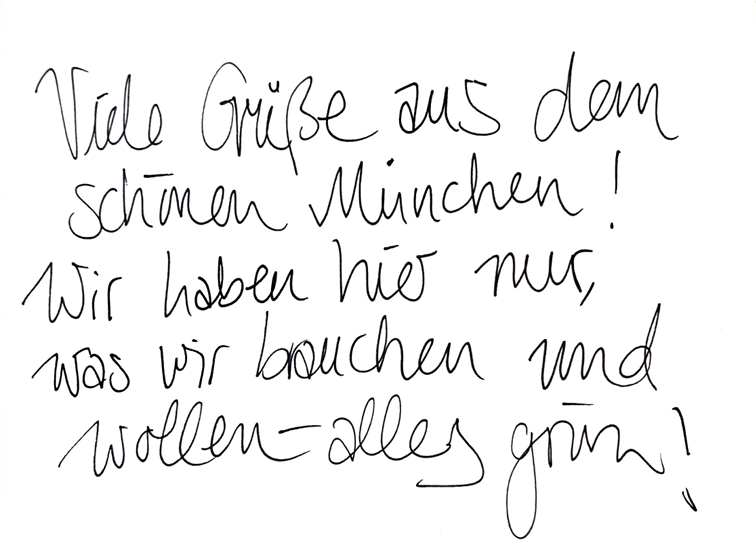 Viele Grüße aus dem
schönen München!
Wir haben hier nur,
was wir brauchen und
wollen - alles grün!